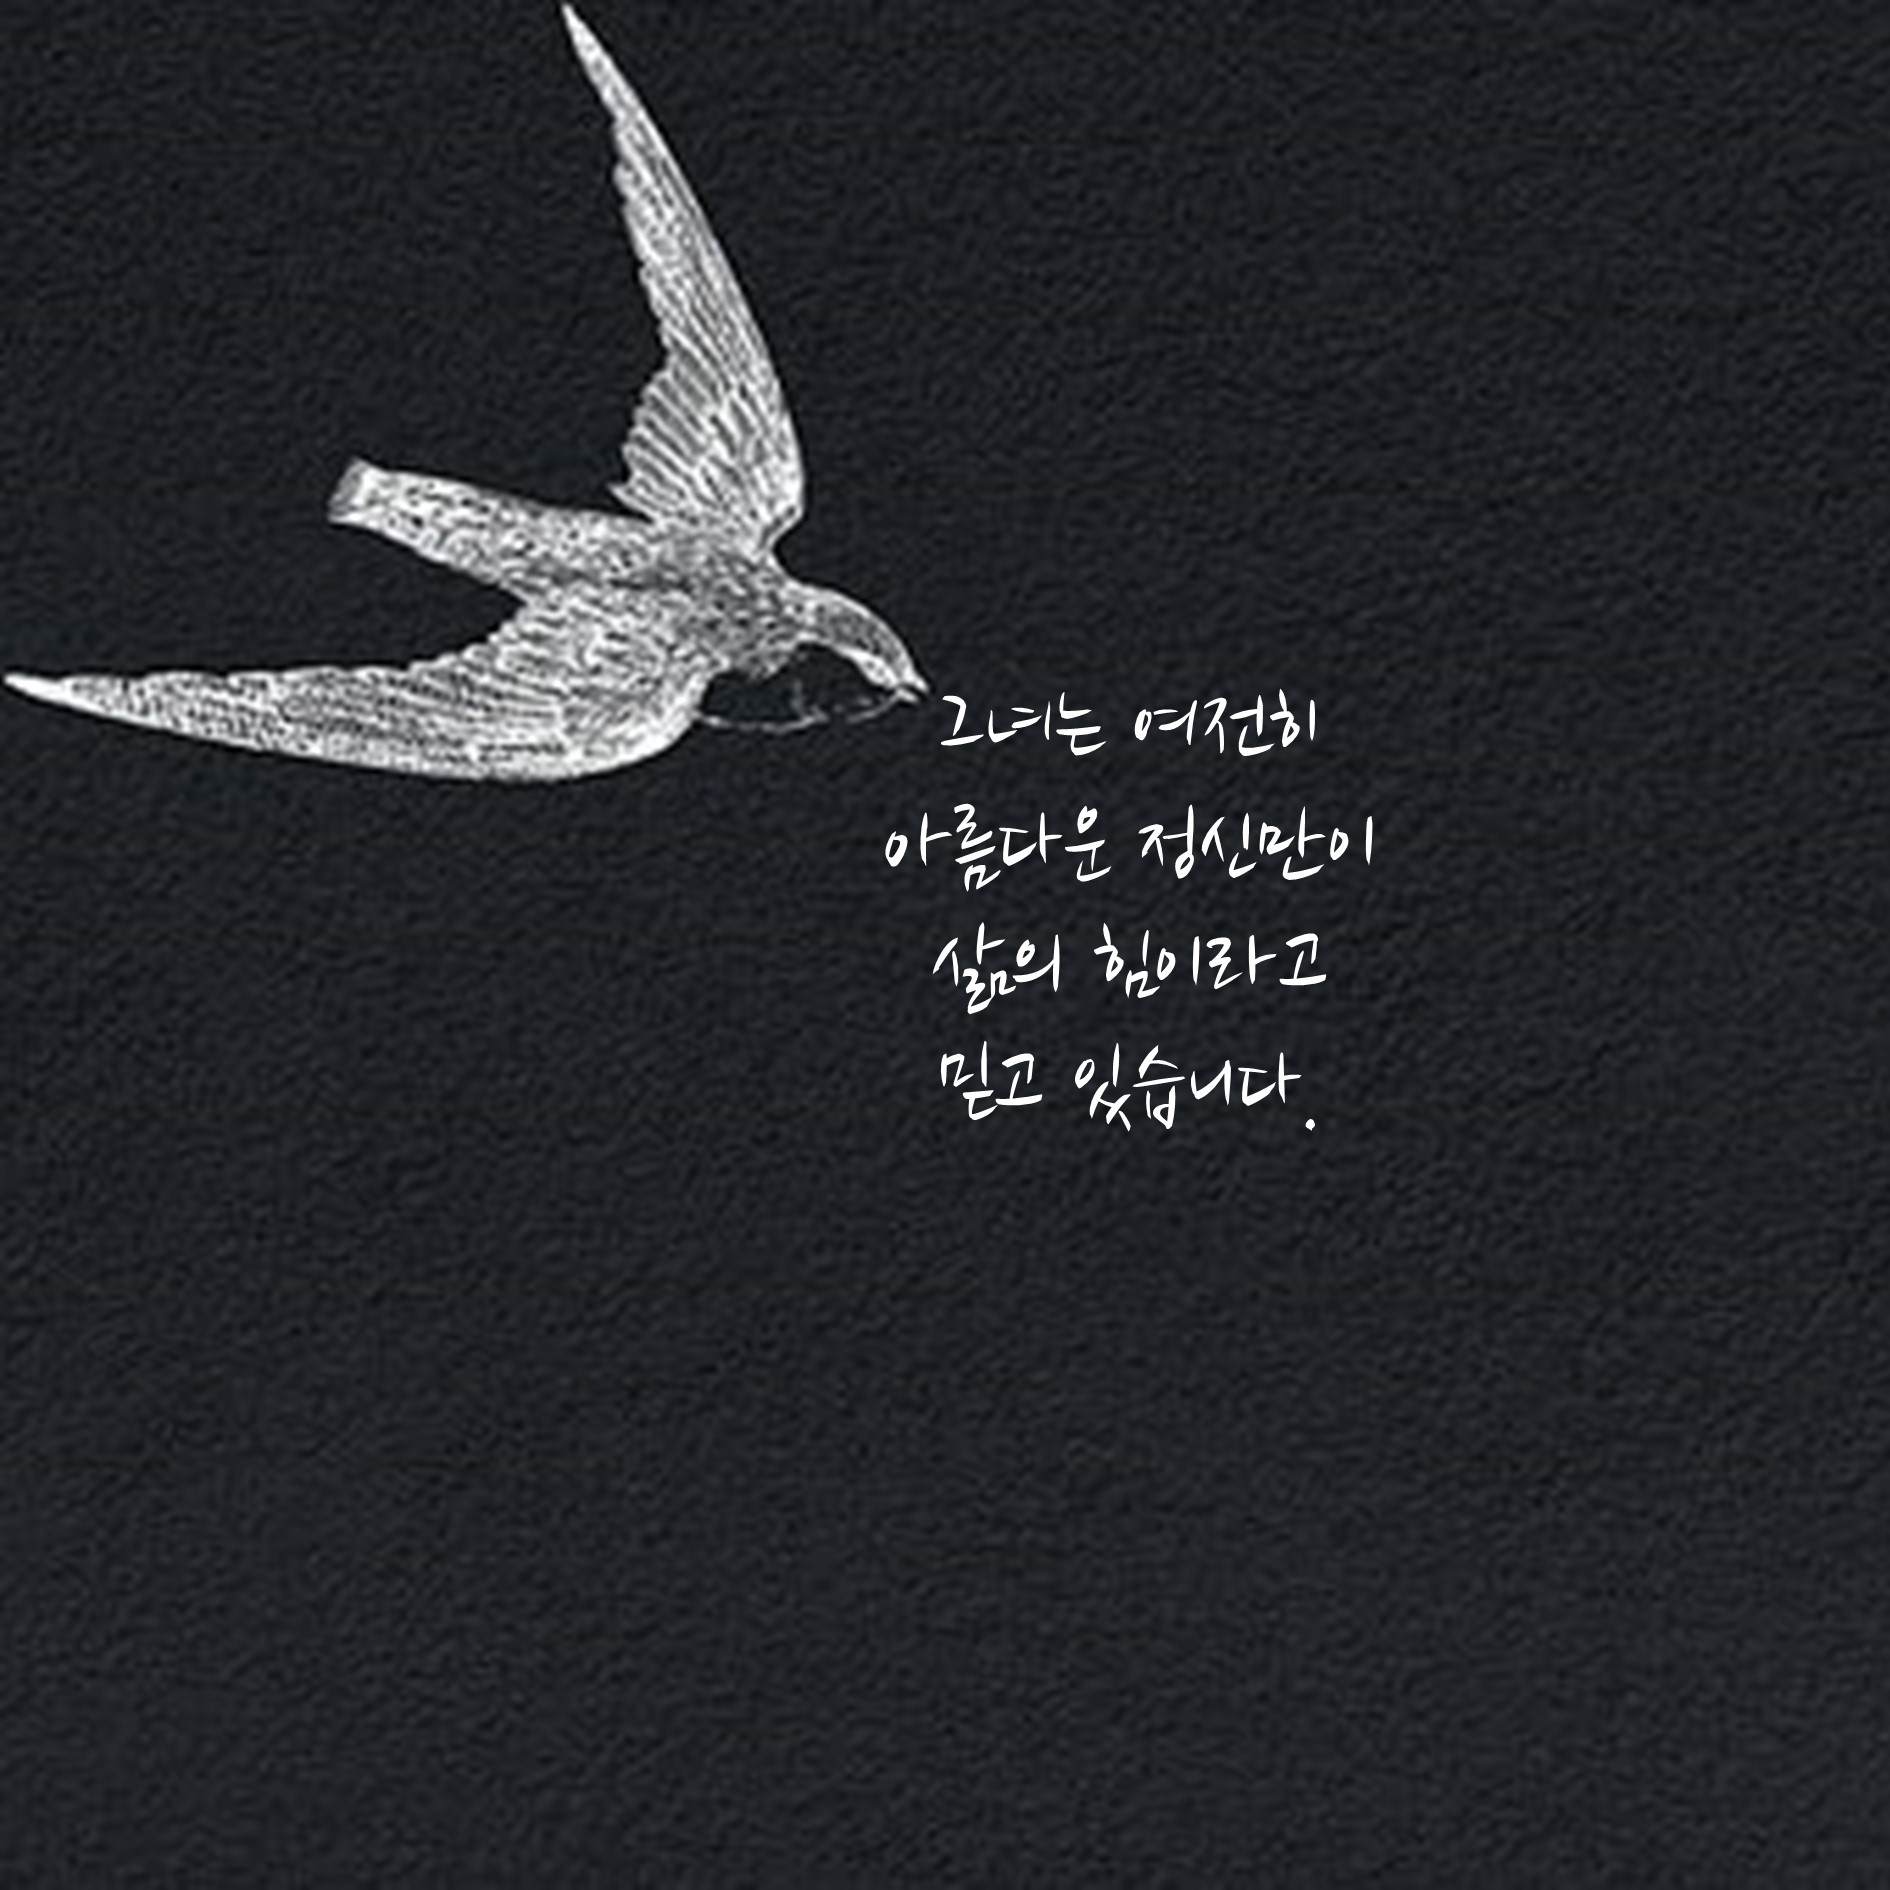 그녀는 여전히
아름다운 정신만이
삶의 힘이라고
믿고 있습니다.